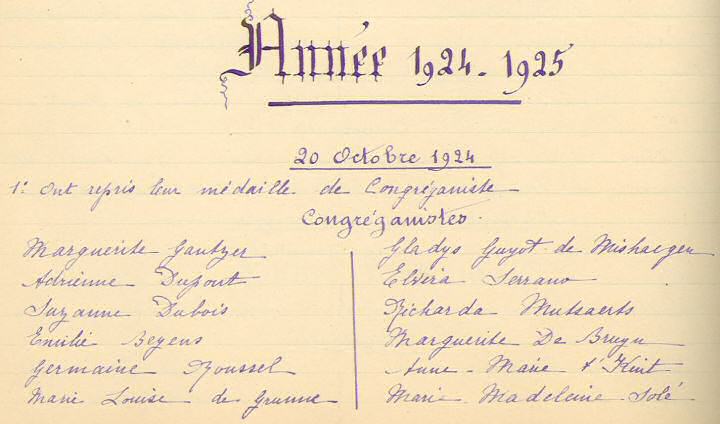 Année 1924-1925
20 Octobre 1924
1º Ont repris leur médaille de Congréganiste
Congréganistes.
Marguerite Gantzer
Adrienne Dupont
Suzanne Dubois
Emilie Beyens
Germaine Roussel
Marie Louise de Grunne
Gladys Guyot de Mishaegen
Elvira Serrano
Richarda Mutsaerts
Marguerite De Bruyn
Anne-Marie t'Kint
Marie Madeleine Solé